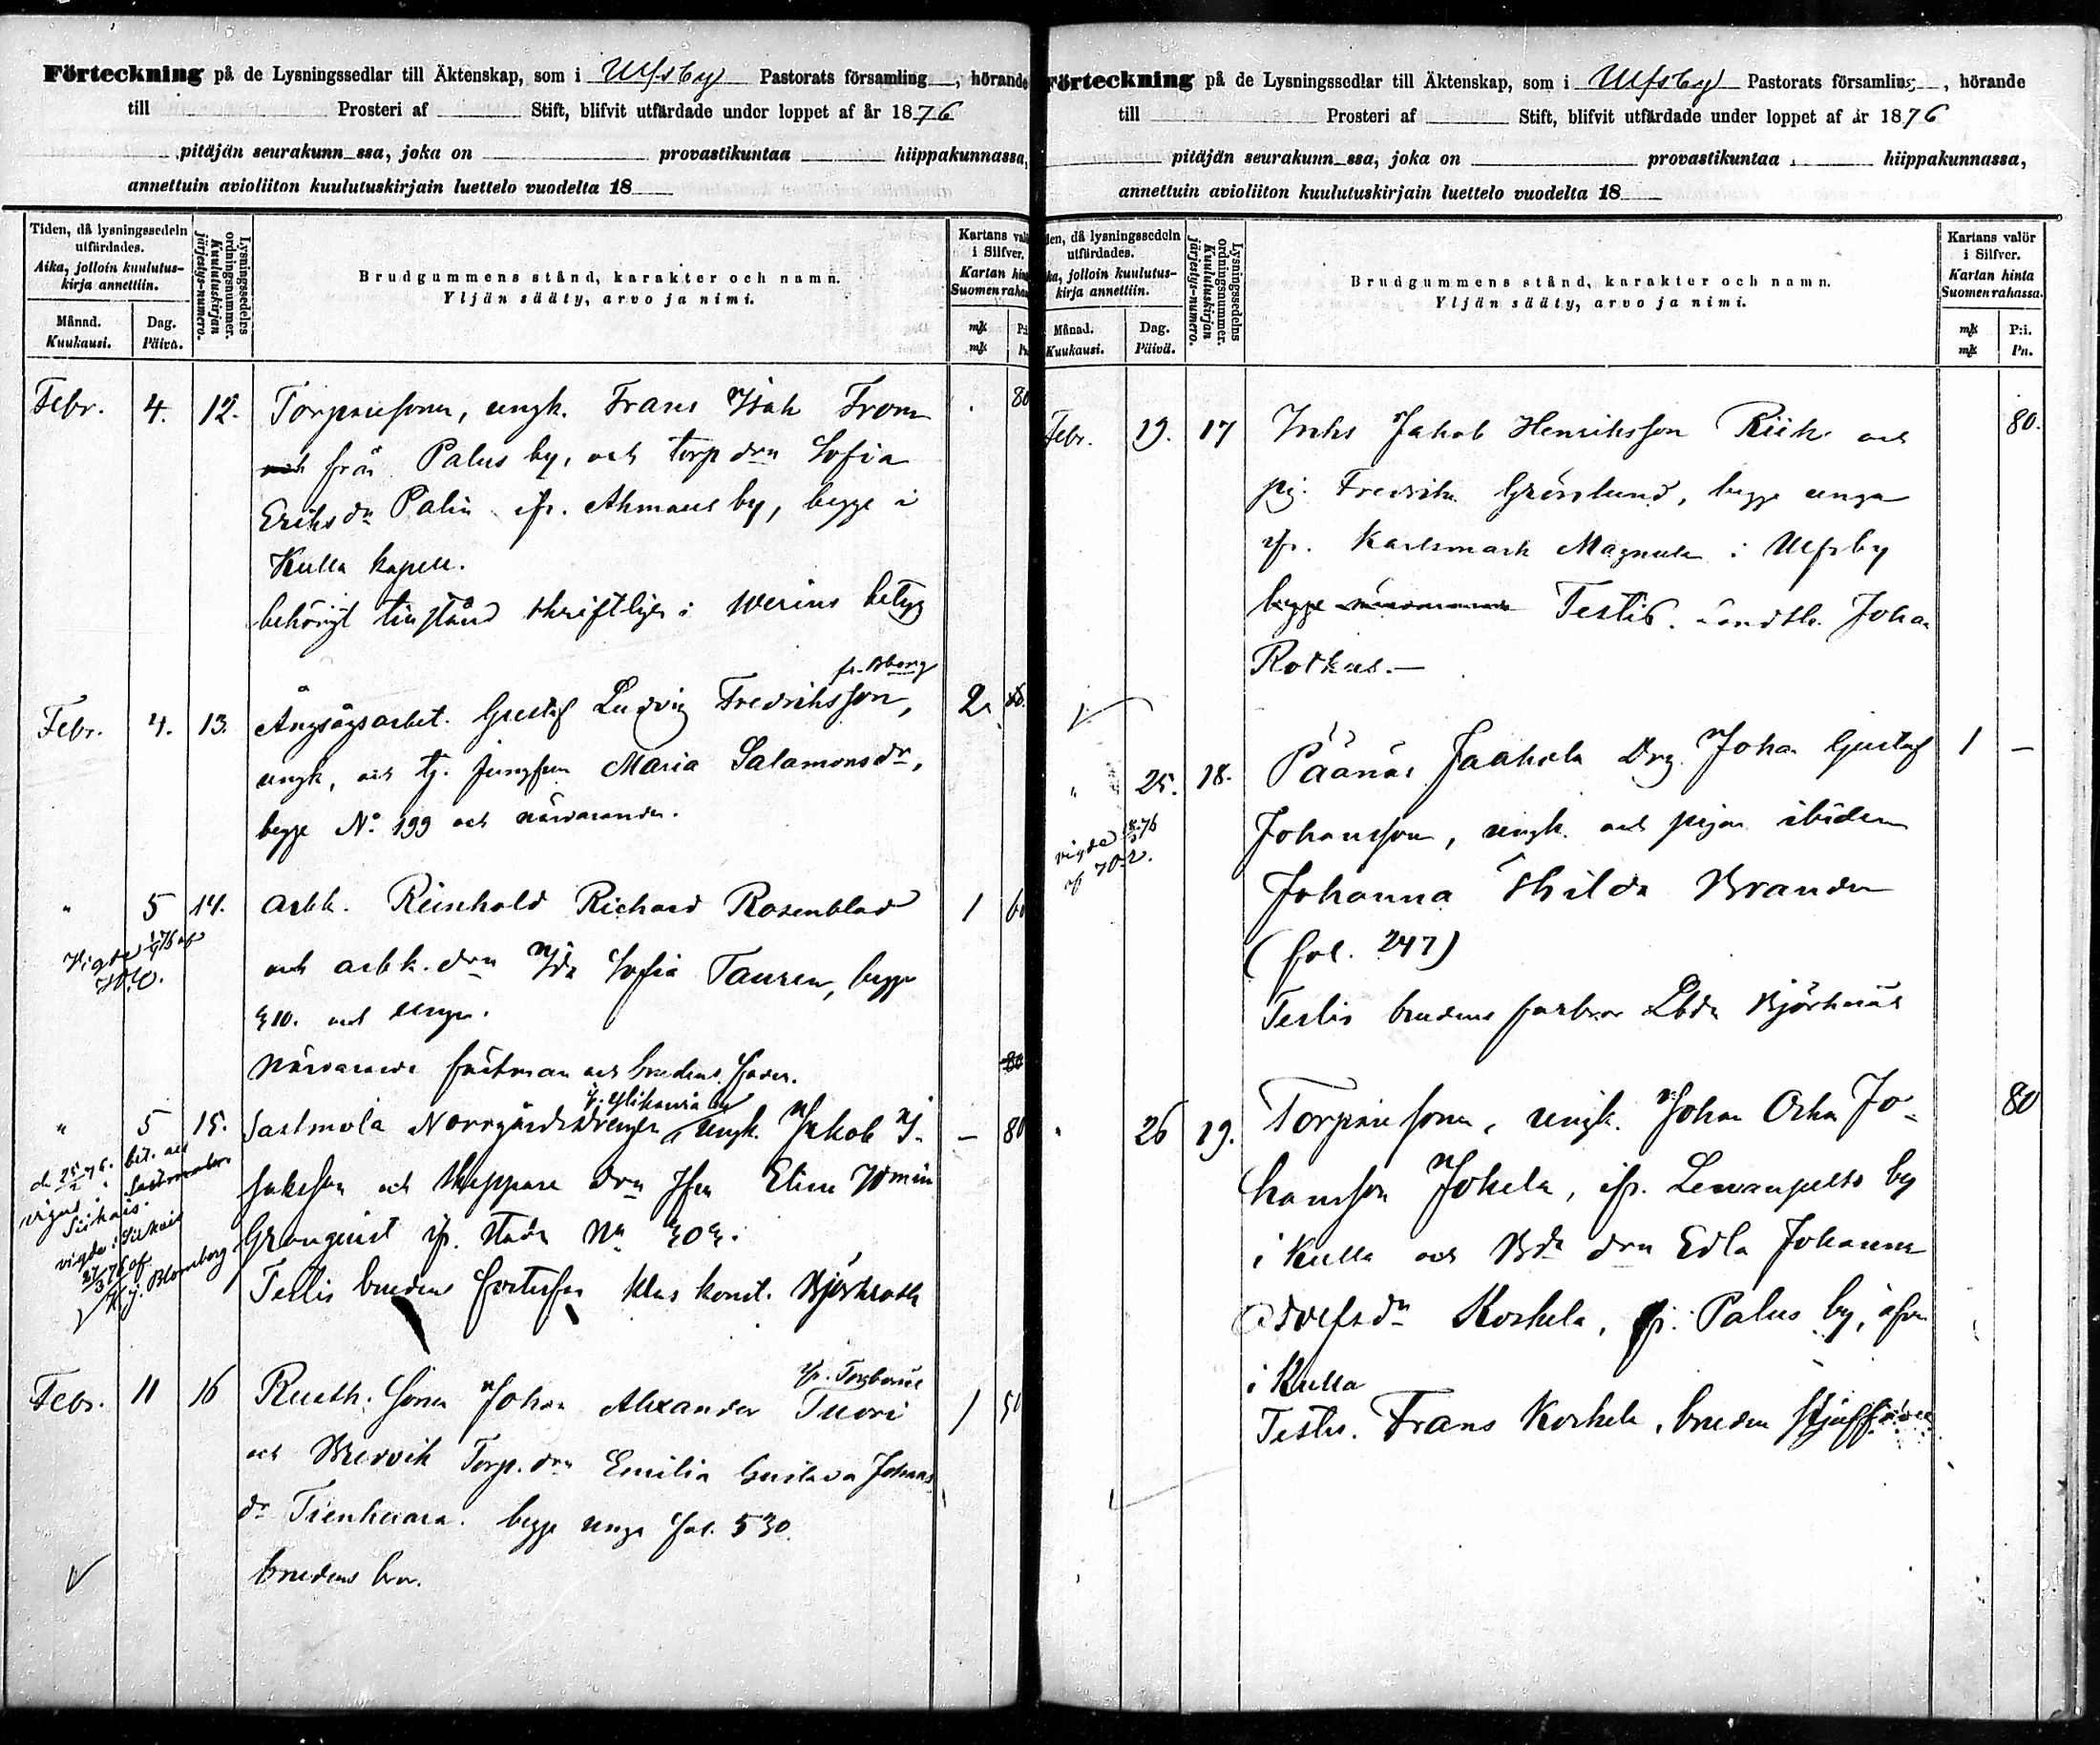 Förteckning på de Lysningssedlar till Äktenskap, som i Ulfsby Pastorats församling, hörande
till Prosteri af Stift, blifvit utfärdade under loppet af år 1876
pitäjän seurakunn ssa, joka on provastikuntaa hiippakunnassa,
annettuin avioliiton kuulutuskirjain luettelo vuodelta 18
Tiden, då lysningssedeln utfärdades.
Aika, jolloin kuulutus-kirja annettiin.
Månad. Kuukausi.
Dag. Päivä.
Lysningssedelns ordningsnummer.
Kuulutuskirjan järjestys-numero.
Brudgummens stånd, karakter och namn.
Yljän sääty, arvo ja nimi.
Kartans val
i Silfver.
Kartan hin
Suomen raha
Febr. 4. 12. Torparesonen, ungk. Frans Isak From 80
och från Palus by, och torp drn Sofia
Eriksdr Palin ifr. Ahmaus by, begge i
Kulla kapell.
behörigt tillstånd skriftligen i betyg
fr. Bborg
Febr. 4. 13. Ångsågsarbet. Gustaf Ludvig Fredriksson, 2
ungk, och tj. jungfrun Maria Salamonsdr,
begge No 199 och närvarande.
" 5 14. Arbk. Reinhold Richard Rosenblad 1 60
Vigde
och arbk. drn Ida Sofia Tauren, begge
och unga.
Närvarande fästman och brudens fader. 80
" 5 15. Sastmola Norrgårds drengen ungk. Jakob J. — 80
jakson och skeppare drn Jfrn Elina
Granquist ifr. staden
Testis brudens Klas Konst. Björkroth
vigde i Siikais
Blomberg
ifr. Torpbonäs
Febr. 11 16 Rusth. sonen Johan Alexander Tuori 1 50
och Torp. drn Emilia Gustava Johans
dr Tienhaara. begge unga fol. 530.
brudens bror.
Förteckning på de Lysningssedlar till Äktenskap, som i Ulfsby Pastorats församling, hörande
till Prosteri af Stift, blifvit utfärdade under loppet af år 1876
pitäjän seurakunn ssa, joka on provastikuntaa hiippakunnassa,
annettuin avioliiton kuulutuskirjain luettelo vuodelta 18
den, då lysningssedeln utfärdades.
ka, jolloin kuulutus-kirja annettiin.
Månad. Kuukausi.
Dag. Päivä.
Lysningssedelns ordningsnummer.
Kuulutuskirjan järjestys-numero.
Brudgummens stånd, karakter och namn.
Yljän sääty, arvo ja nimi.
Kartans valör
i Silfver.
Kartan hinta
Suomen rahassa.
mk P:i.
mk Pn.
Febr. 19. 17 Inhs Jakob Henriksson Riik och 80.
pig. Fredrika Grönlund, begge unga
ifr. Karlsmark Magnula i Ulfsby
begge närvarande Testis. Johan
Rotkus.—
" 25. 18. Päänäs Jaakola Drg. Johan Gustaf 1 —
vigde
Johansson, ungk. och pigan ibidem
Johanna Thilda Brander
(fol. 247)
Testis brudens farbror Björknäs
" 26 19. Torparesonen, ungk. Johan Oskar Jo- 80
hansson Jokela, ifr. Lewanpelto by
i Kulla och drn Edla Johanna
Adolfsdr Koskela, fr. Palus by, äfven
i Kulla
Testis. Frans Koskela, brudens styffader